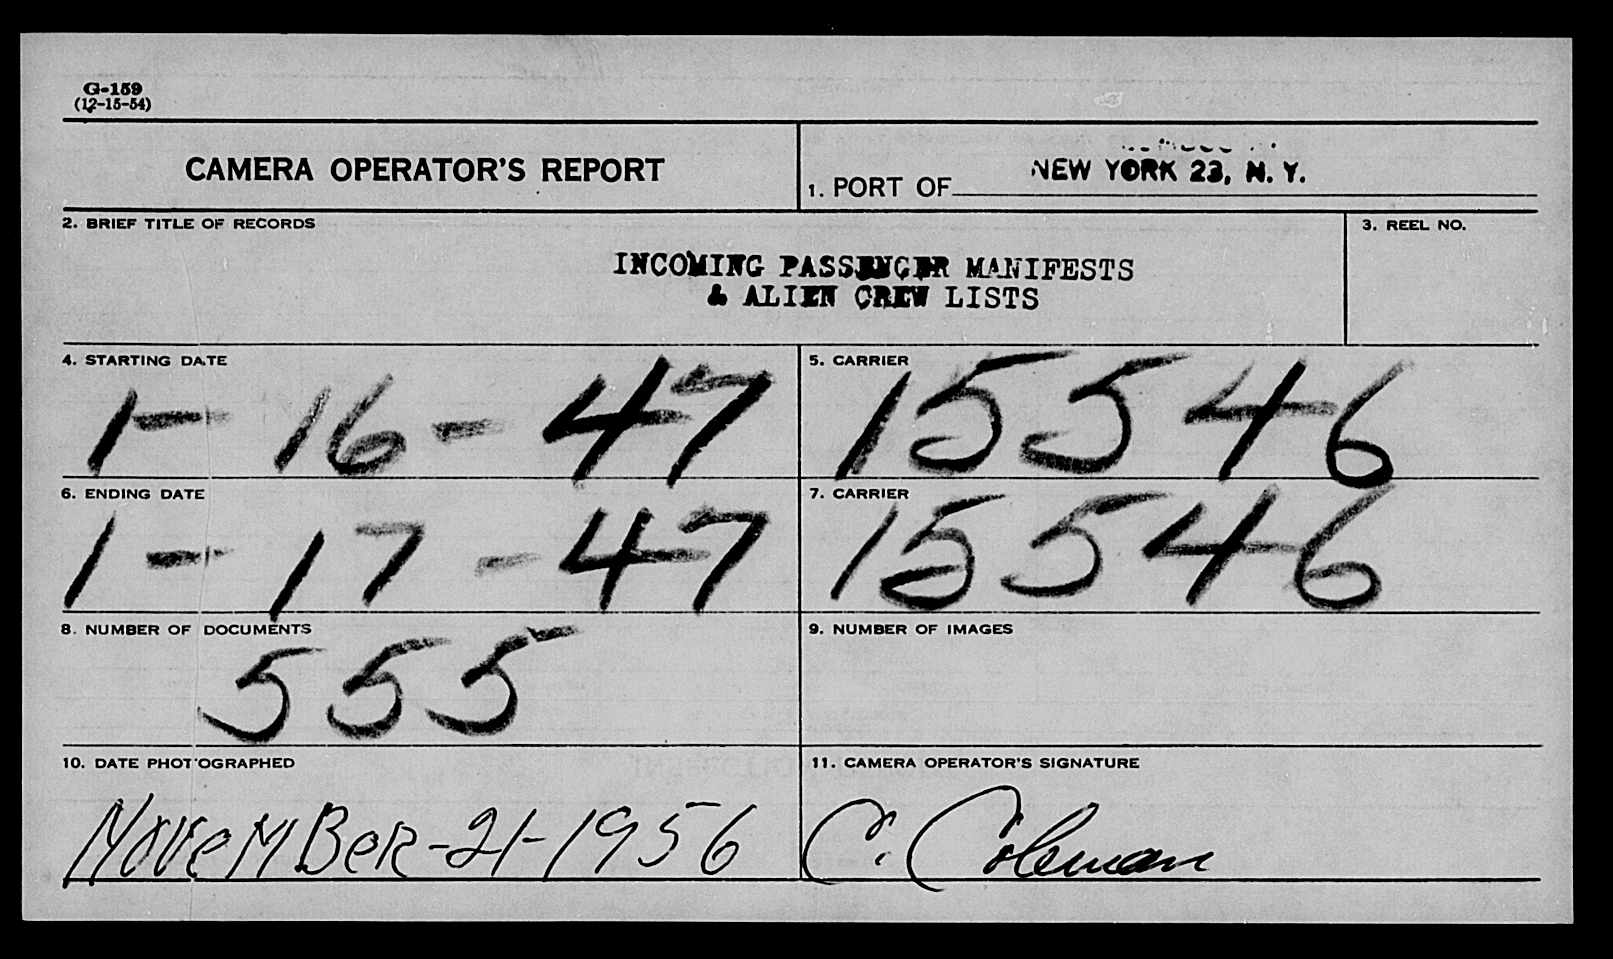 G-159
(12-15-54)
CAMERA OPERATOR'S REPORT
1. PORT OF NEW YORK 23, N. Y.
2. BRIEF TITLE OF RECORDS
3. REEL NO.
INCOMING PASSENGER MANIFESTS
& ALIEN CREW LISTS
4. STARTING DATE
1-16-47
5. CARRIER
15546
6. ENDING DATE
1-17-47
7. CARRIER
15546
8. NUMBER OF DOCUMENTS
555
9. NUMBER OF IMAGES
10. DATE PHOTOGRAPHED
NoveMBeR-21-1956
11. CAMERA OPERATOR'S SIGNATURE
C. Coleman